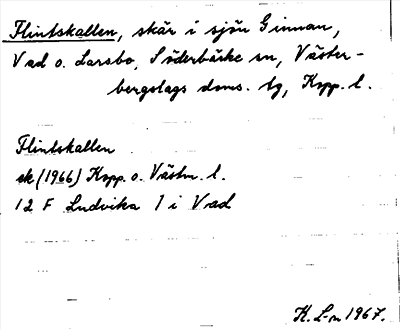 Flintskallen, skär i sjön Ginnan,
Vad o. Larsbo, Söderbärke sn, Väster-
bergslags doms. tg, Kopp. l.
Flintskallen
ek (1966) Kopp. o. Västm. l.
12 F Ludvika 1 i Vad
K. L-n 1967.